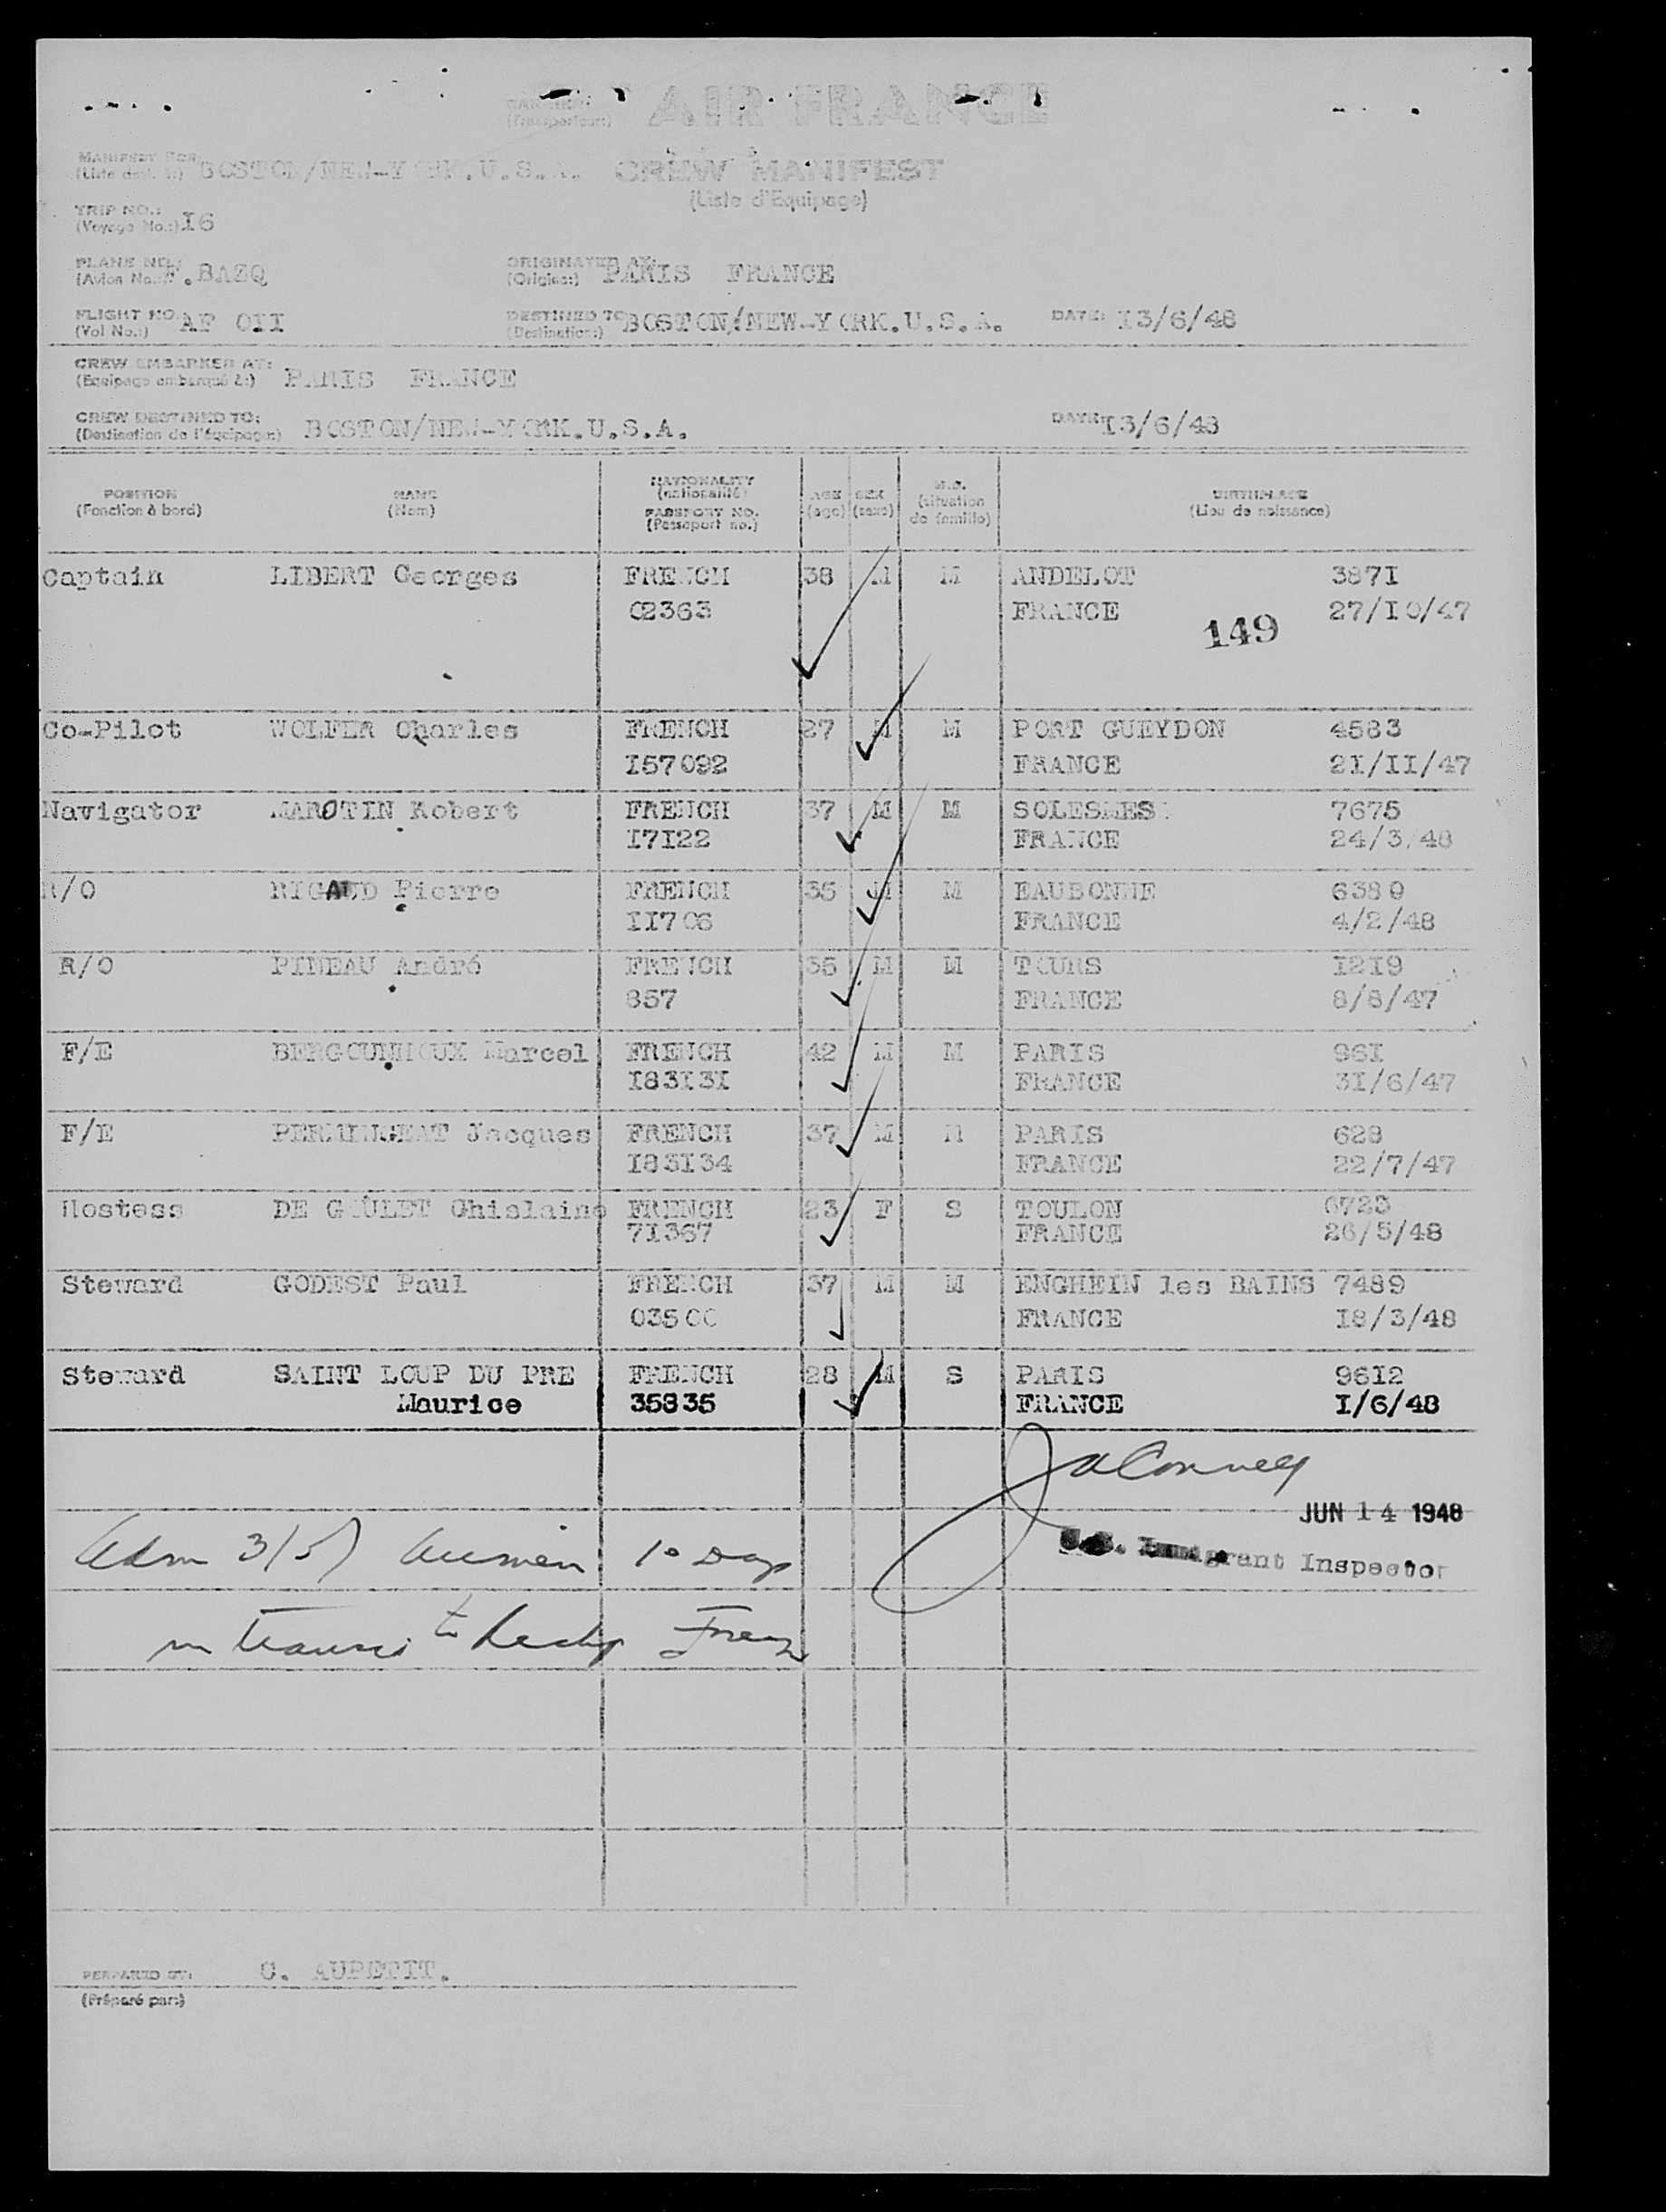 CARRIER: AIR FRANCE
(Transporteur:)
MANIFEST FOR: BOSTON/NEW-YORK.U.S.A. CREW MANIFEST
(Liste dest. à:) (Liste d'Equipage)
TRIP NO.:
(Voyage No.:) I6
PLANE NO.: F.BAZQ ORIGINATED AT: PARIS FRANCE
(Avion No.:) (Origine:)
FLIGHT NO. AF OII DESTINED TO: BOSTON/NEW-YORK.U.S.A. DATE: I3/6/48
(Vol No.:) (Destination:)
CREW EMBARKED AT: PARIS FRANCE
(Equipage embarqué à:)
CREW DESTINED TO: BOSTON/NEW-YORK.U.S.A. DATE: I3/6/48
(Destination de l'équipage:)
POSITION NAME NATIONALITY AGE SEX M.S. BIRTHPLACE
(Fonction à bord) (Nom) (nationalité) (age) (sexe) (situation de famille) (Lieu de naissance)
PASSPORT NO.
(Passeport no.)
Captain LIBERT Georges FRENCH 38 M M ANDELOT 387I
02363 FRANCE 27/I0/47
149
Co-Pilot WOLFER Charles FRENCH 27 M M PORT GUEYDON 4583
I57092 FRANCE 2I/II/47
Navigator MAROTIN Robert FRENCH 37 M M SOLESMES 7675
I7I22 FRANCE 24/3/48
R/O RIGAUD Pierre FRENCH 35 M M EAUBONNE 6389
II706 FRANCE 4/2/48
R/O PINEAU André FRENCH 35 M M TOURS I2I9
857 FRANCE 8/8/47
F/E BERGOUNHOUX Marcel FRENCH 42 M M PARIS 96I
I83I3I FRANCE 3I/6/47
F/E Jacques FRENCH 37 M M PARIS 628
I83I34 FRANCE 22/7/47
Hostess DE GOULET Ghislaine FRENCH 23 F S TOULON 6723
7I367 FRANCE 26/5/48
Steward GODEST Paul FRENCH 37 M M ENGHEIN les BAINS 7489
03500 FRANCE I8/3/48
Steward SAINT LOUP DU PRE FRENCH 28 M S PARIS 96I2
Maurice 35835 FRANCE I/6/48
JUN 14 1948
Adm 3(5) 10 Days
U.S. Immigrant Inspector
in transit to
PREPARED BY: C. AUPETIT.
(Préparé par:)